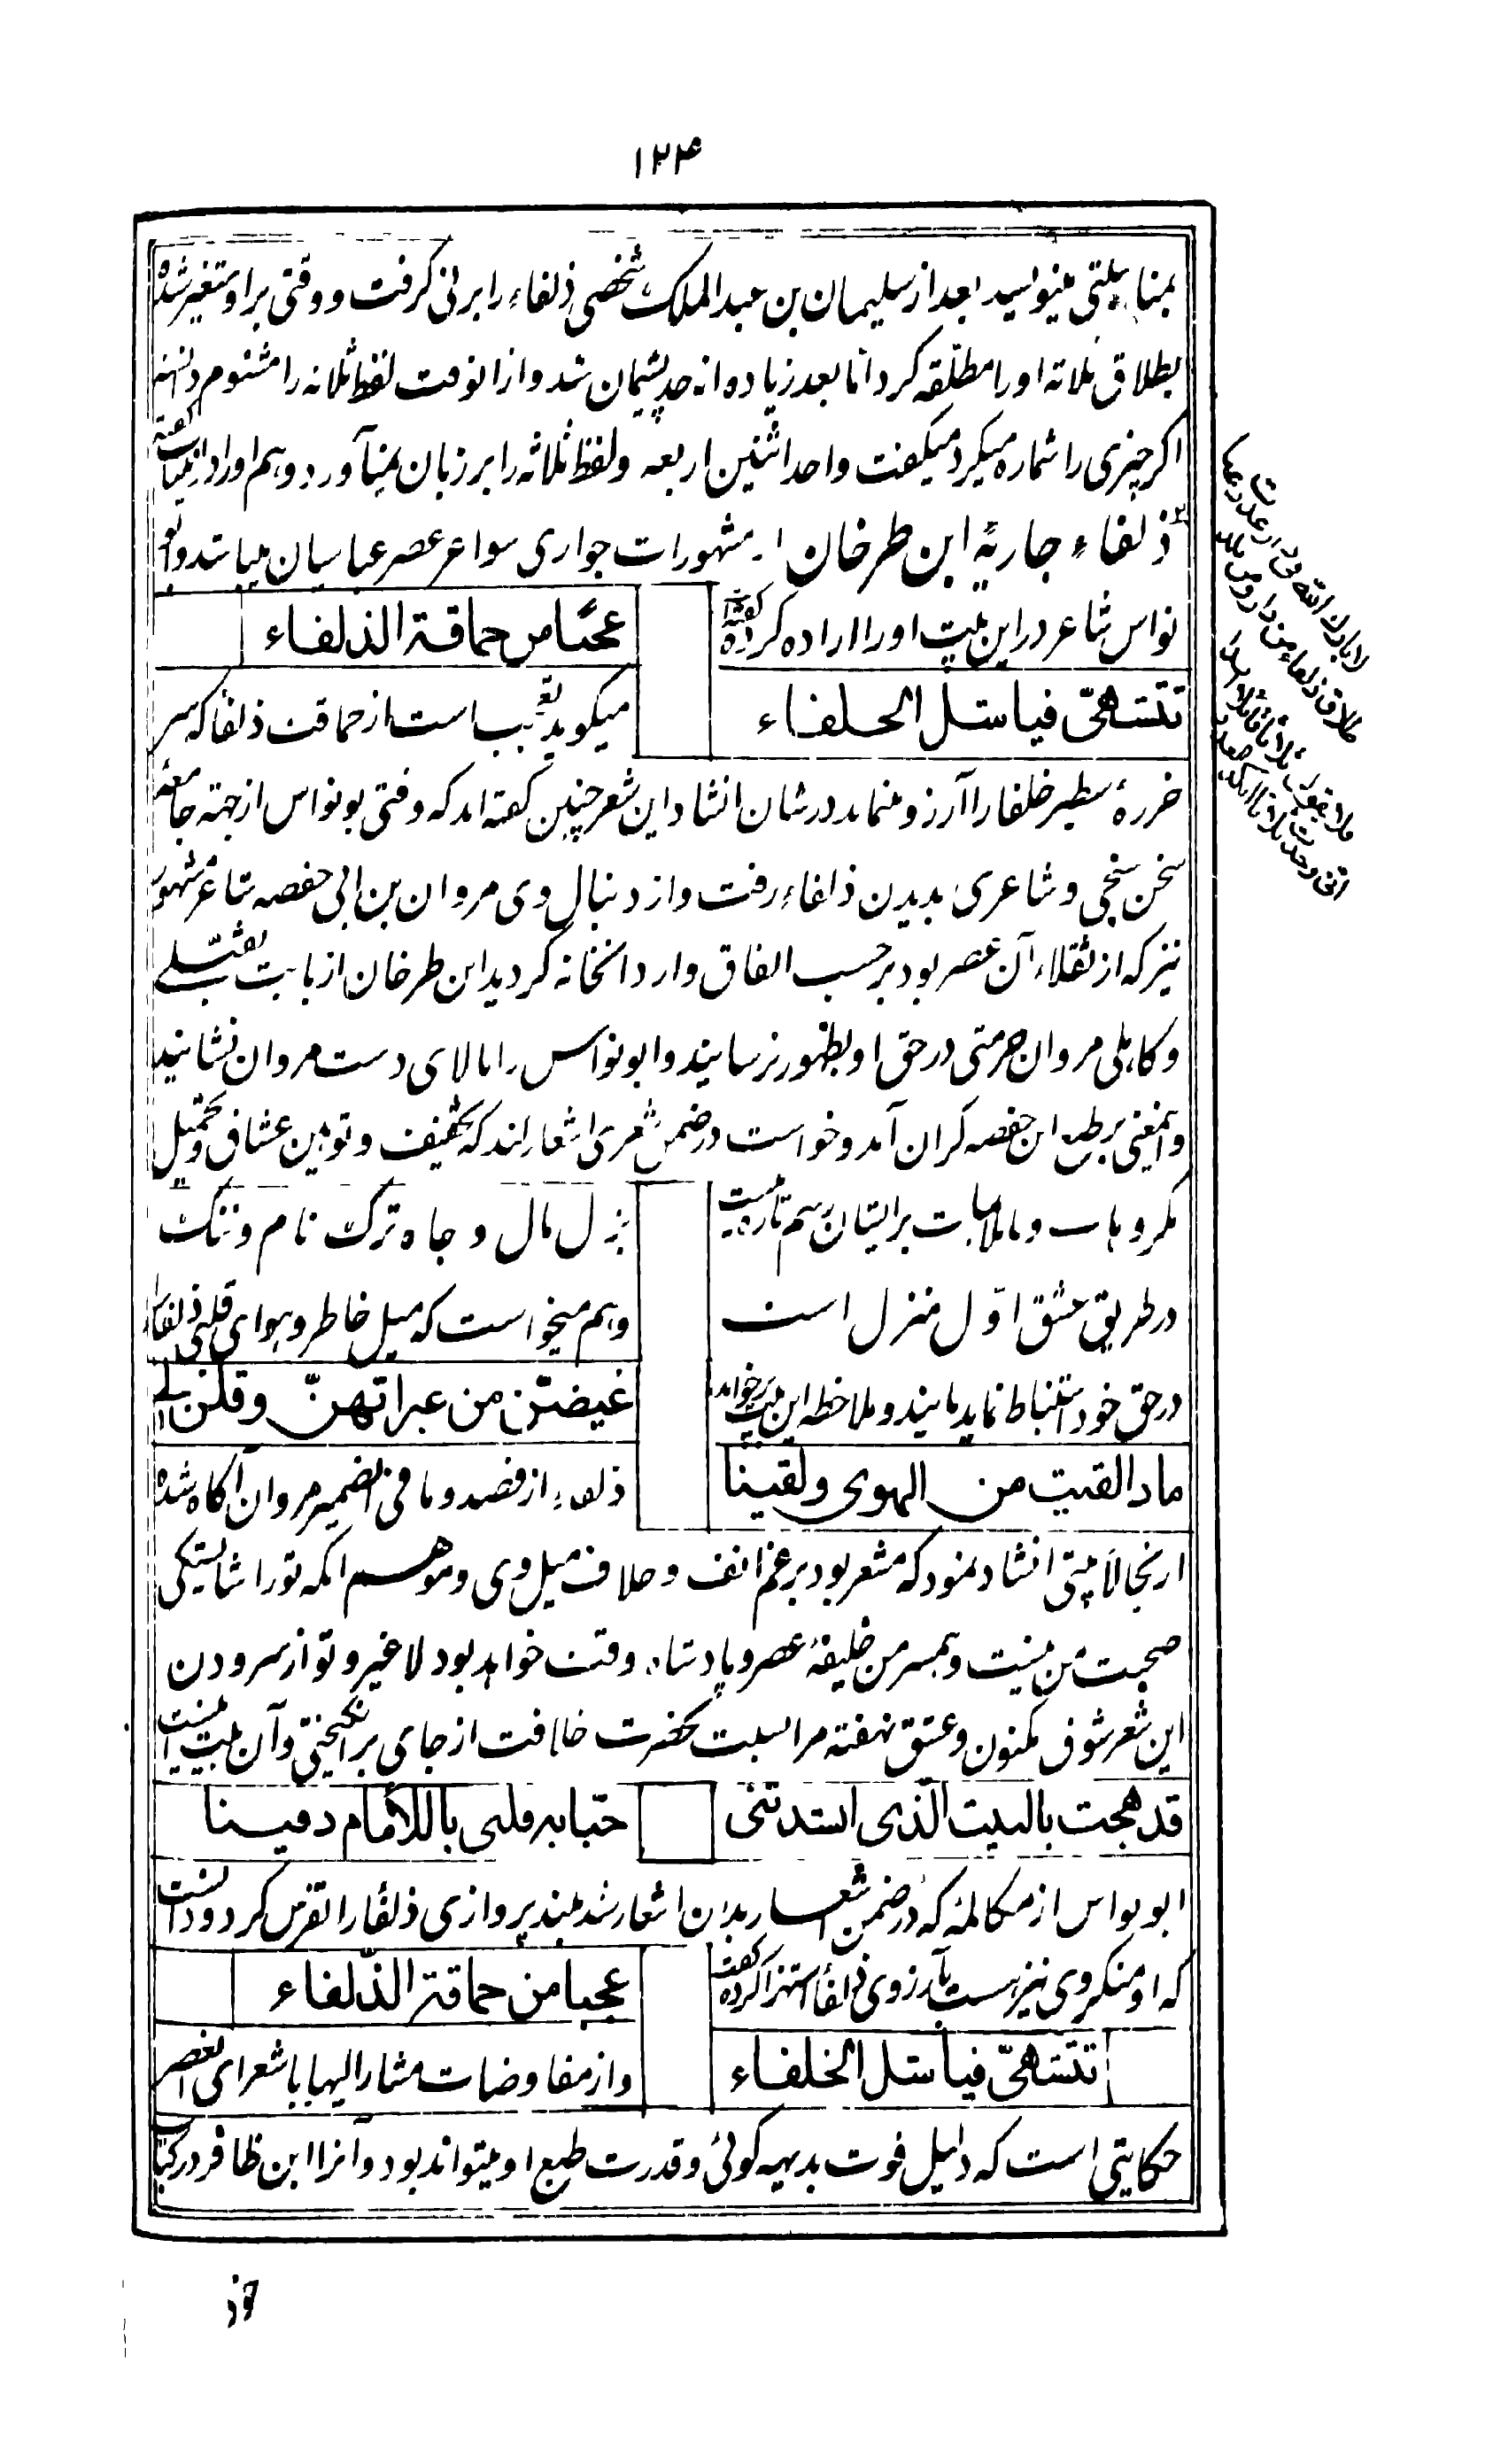 ۱۲۴
بمناسبتی مینویسد بعد از سلیمان بن عبدالملک شخصی ذلفاء را برنی کرفت و وقتی بر او متغیر شده
بطلاق ثلاثه او را مطلقه کرد اما بعد زیاده از حد پشیمان شد و از انوقت لفظ ثلاثه را مشئوم دانسته
اکر چیزی را شماره میکرد میکفت واحد اثنین اربعه و لفظ ثلاثه را بر زبان نمیآورد و هم او راد این ابیات کفته
ذلفاء جاریهٔ ابن طرخان از مشهورات جواری شواعر عصر عباسیان میباشد و ابو
نواس شاعر در این بیت او را اراده کرده کفته
عجبًا من حماقة الذلفاء
تتشهّی فیاشل الخلفاء
میکوید تعجب است از حماقت ذلفا که سر
خرزهٔ سطبر خلفا را آرزو مینماید در شان انشاد این شعر چنین کفته‌اند که وقتی بونواس از جهته جامعهٔ
سخن سنجی و شاعری بدیدن ذلفاء رفت و از دنبال وی مروان بن ابی حفصه شاعر مشهور
نیز که از ثقلاء آن عصر بود بر حسب اتفاق وارد انخانه کردید ابن طرخان از بابت
و کاهلی مروان حرمتی در حق او بظهور نرسانید و ابونواس را بالای دست مروان نشانید
و اینمعنی بر طبع ابن حفصه کران آمد و خواست در ضمن شعری اشعار کند که تخفیف و توهین عشاق و تحمیل
مکروهات و ناملایمات بر ایشان رسم تازه نیست
بذل مال و جاه ترک نام و ننک
در طریق عشق اوّل منزل است
و هم میخواست که میل خاطر و هوای قلبی ذلفاء
در حق خود استنباط نماید مابیند و ملاحظه این بیت برخواند
غیضن من عبراتهنّ و قلن لی
ماذا لقیت من الهوی و لقینا
ذلفاء از قصد و ما فی الضمیر مروان آکاه شده
ارتجالاً بیتی انشاد نمود که مشعر بود بر غم انف و خلاف میل وی و موهم انکه تو را شایستکی
صحبت من نیست و همسر من خلیفهٔ عصر و پادشاه وقت خواهد بود لا غیر و تو از سرودن
این شعر شوق مکنون و عشق نهفته مرا نسبت بحضرت خلافت از جای بر انکیختی و آن بیت اینست
قد هجت بالبیت الّذی انشدتنی
حبّا بقلبی للأمام دفینا
ابو نواس از مکالمهٔ که در ضمن اشعار بدان اشعار شد بلند پروازی ذلفا را تفرس کرد و دانست
که او منکر وی نیز هست بآرزوی ذلفا استهزا کرده کفت
عجبا من حماقة الذّلفاء
تتشهّی فیاشل الخلفاء
و از مفاوضات مشار الیها با شعرای انعصر
حکایتی است که دلیل قوت بدیهه کوئی و قدرت طبع او میتواند بود و آنرا ابن ظافر در کتاب
لا بارک الله فی